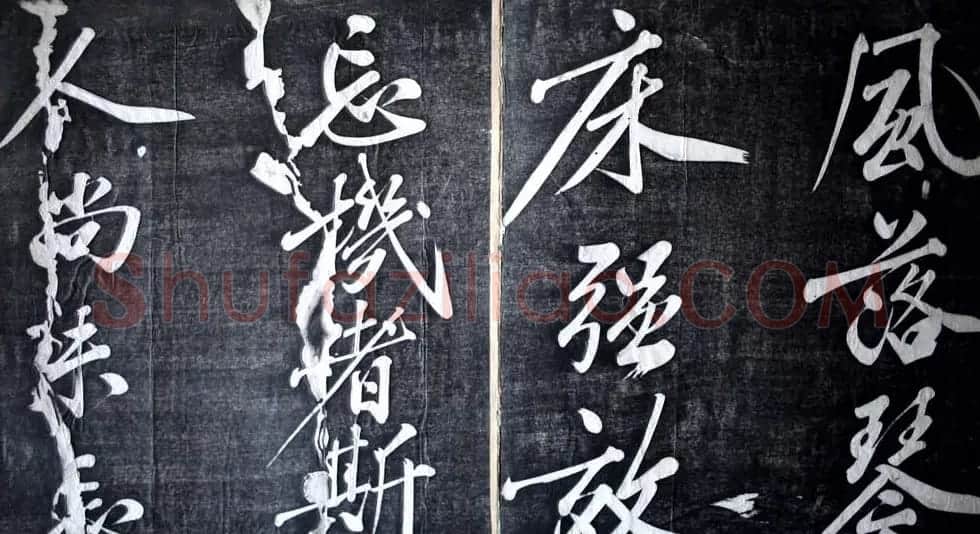 風落琴
床強
忘機者斯
尚珠
Shufaziliao.COM